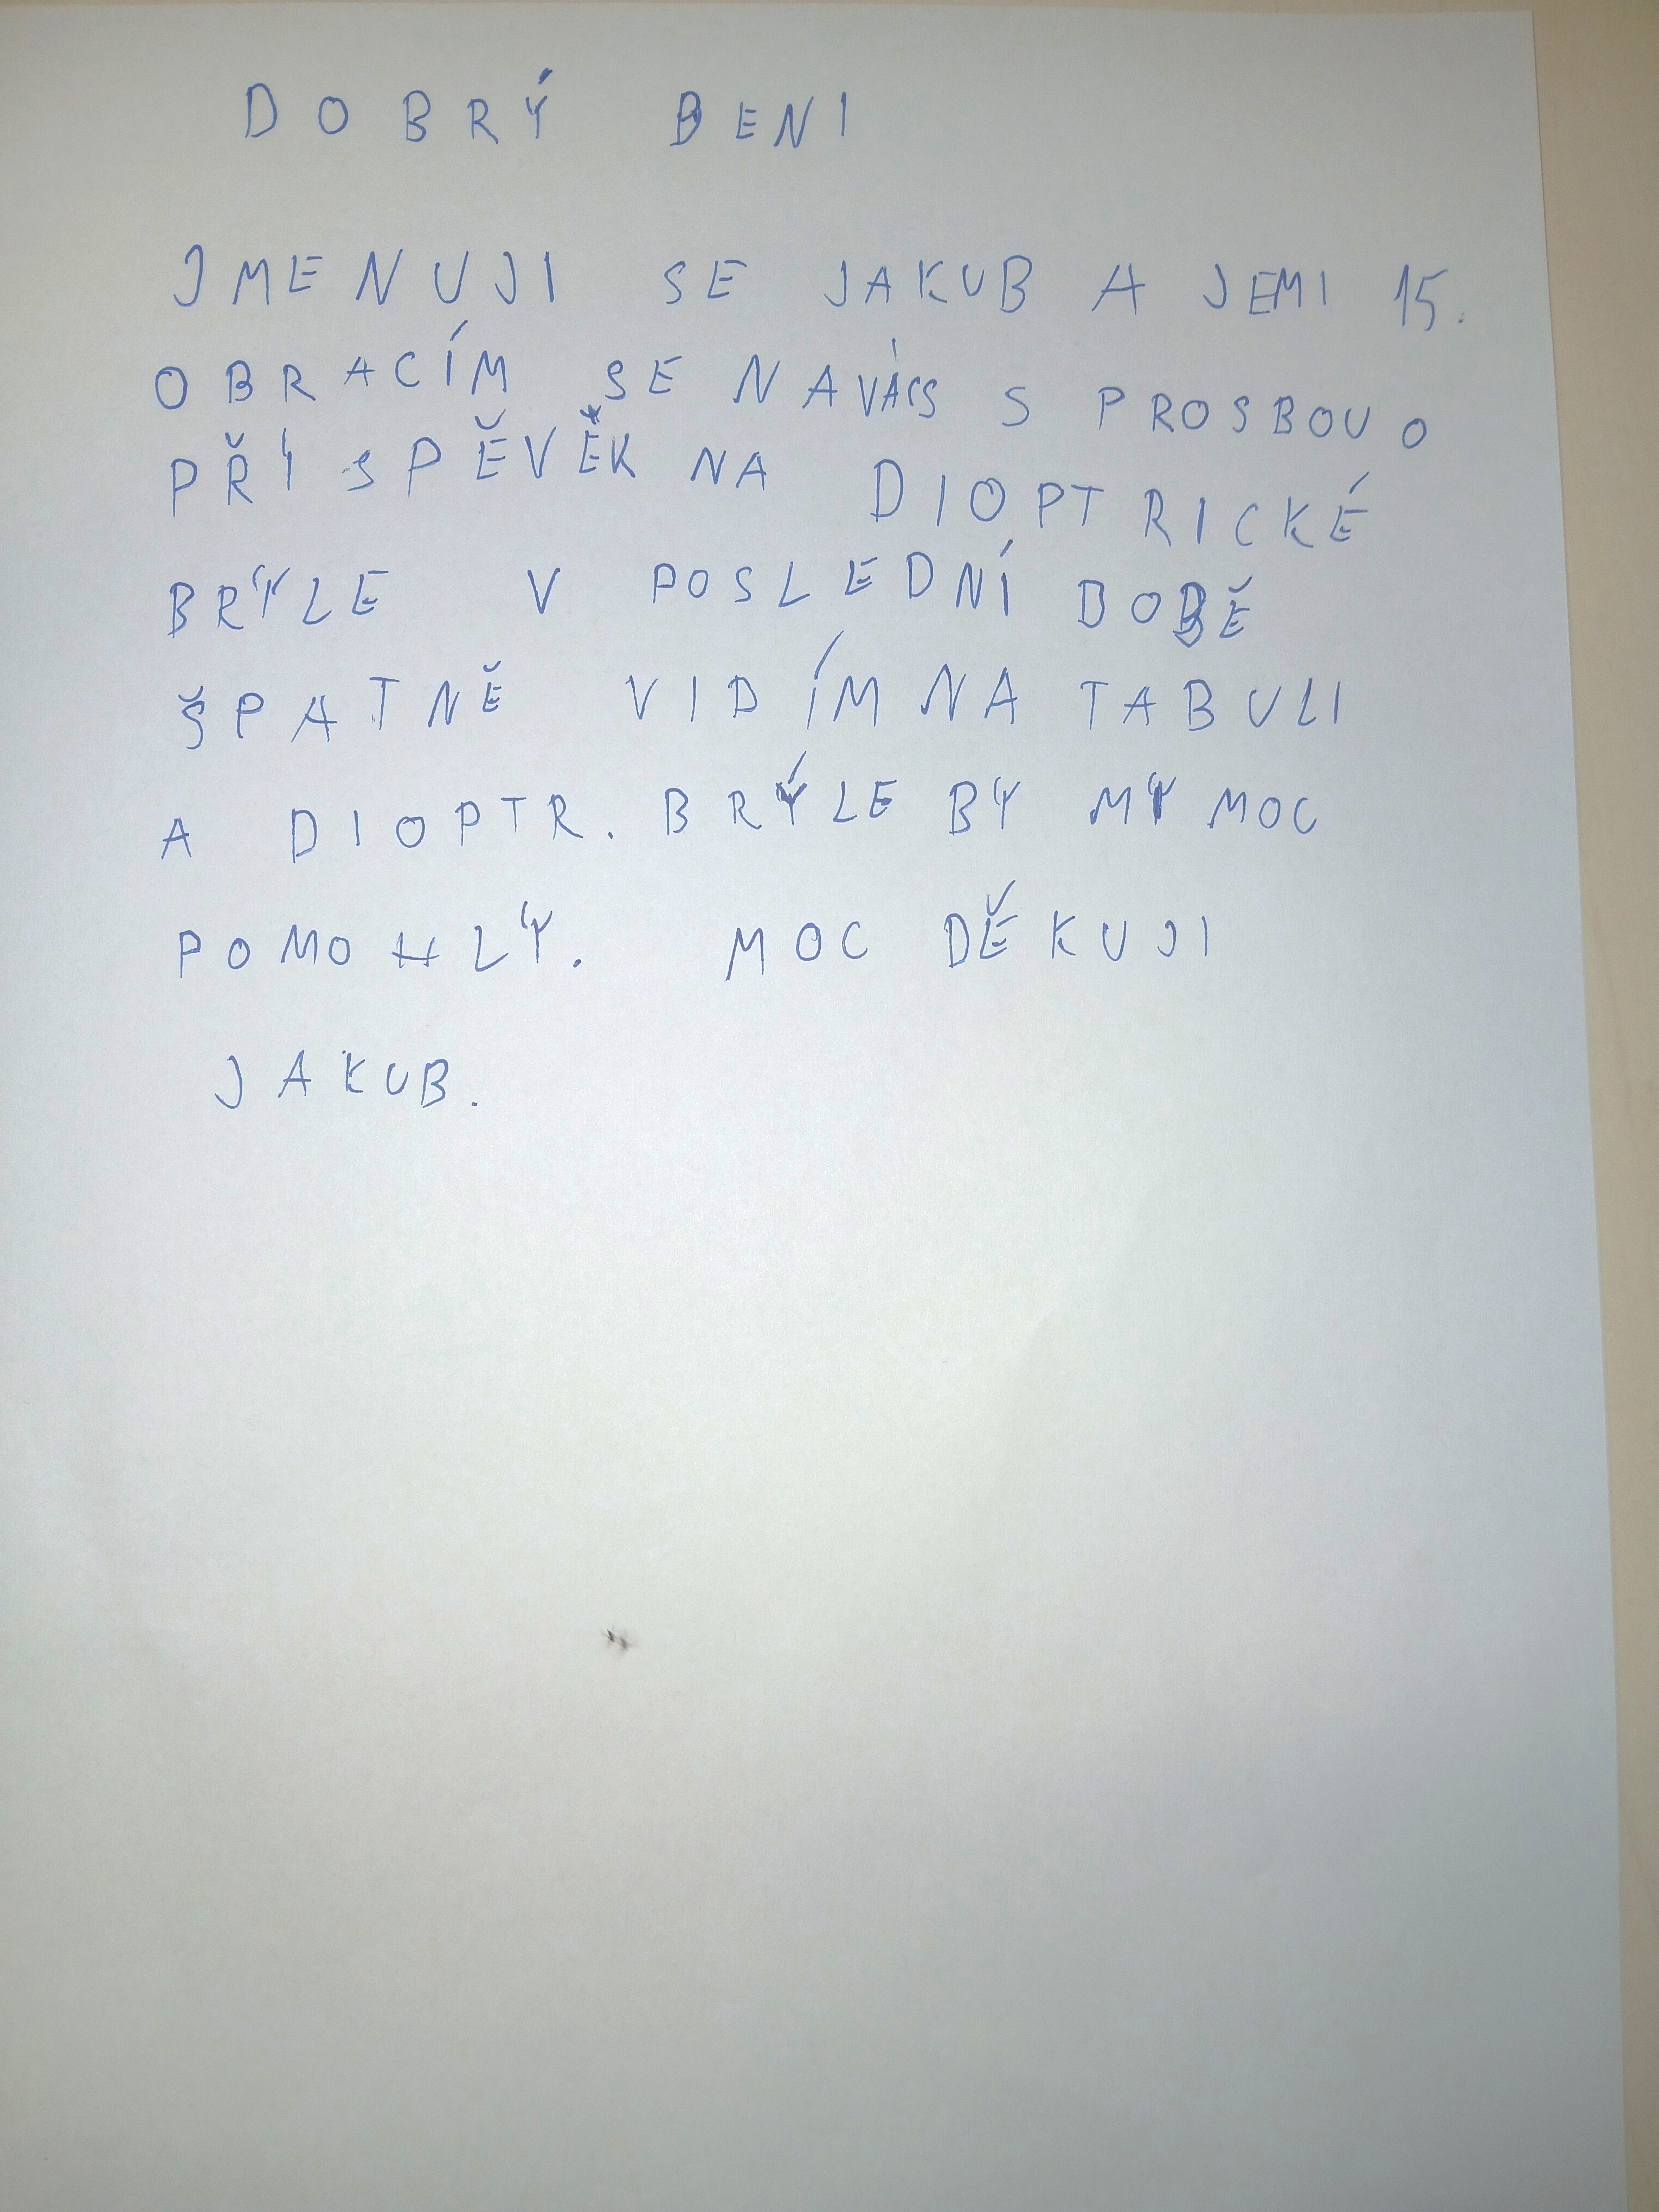 DOBRÝ BENI
JMENUJI SE JAKUB A JEMI 15.
OBRACÍM SE NAVÁS S PROSBOU O
PŘÍSPĚVĚK NA DIOPTRICKÉ
BRÝLE V POSLEDNÍ DOBĚ
ŠPATNĚ VIDÍM NA TABULI
A DIOPTR. BRÝLE BY MY MOC
POMOHLÝ. MOC DĚKUJI
JAKUB.